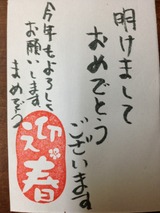 明けまして
おめでとう
ございます
今年もよろしく
お願いします。
まめぞう
迎春